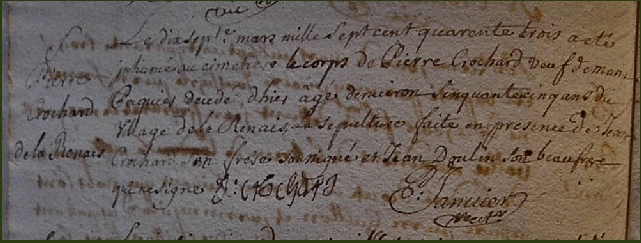 Le dix sept.e mars mille sept cent quarente trois a eté
Pierre inhumé au cimetiere le corps de Pierre Crochard veuf de
Crochard Paques decedé d'hier âgé denviron Sinquante cinq ans du
village de le Renais, la sepulture faite en presence de Jean
de la Renais Crochard son frere soussigné et Jean Doulin son beaufrere
qui ne signe J: Crochard P. Janvier